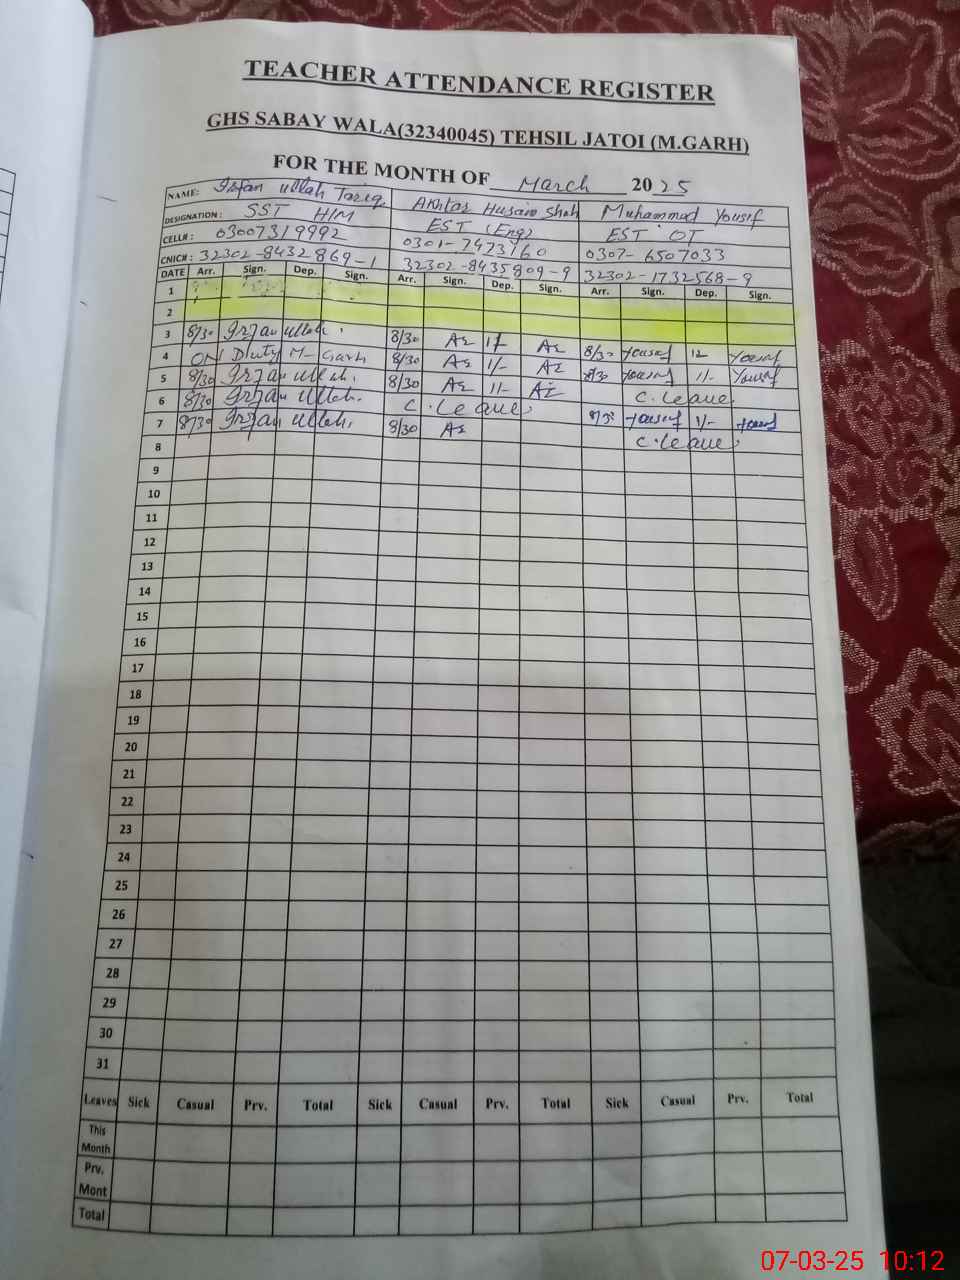 TEACHER ATTENDANCE REGISTER
GHS SABAY WALA(32340045) TEHSIL JATOI (M.GARH)
FOR THE MONTH OF March 2025
NAME: Irfan ullah Tariq Akhtar Husain Shah Muhammad Yousif
DESIGNATION: SST H/M EST (Eng) EST OT
CELL#: 03007319992 0301-7473160 0307-6507033
CNIC#: 32302-8432869-1 32302-8435809-9 32302-1732568-9
DATE Arr. Sign. Dep. Sign. Arr. Sign. Dep. Sign. Arr. Sign. Dep. Sign.
1
2
3 8/30 Irfan ullah. 8/30 8/30 Yousif 12 Yousif
4 ON Duty M-Garh 8/30 1/- 8/30 Yousif 1/- Yousif
5 8/30 Irfan ullah. 8/30 1/- C.Leave
6 8/30 Irfan ullah. C.Leave 8/30 Yousif 1/- Yousif
7 8/30 Irfan ullah. 8/30 C.Leave
8
9
10
11
12
13
14
15
16
17
18
19
20
21
22
23
24
25
26
27
28
29
30
31
Leaves Sick Casual Prv. Total Sick Casual Prv. Total Sick Casual Prv. Total
This
Month
Prv.
Mont
Total
07-03-25 10:12